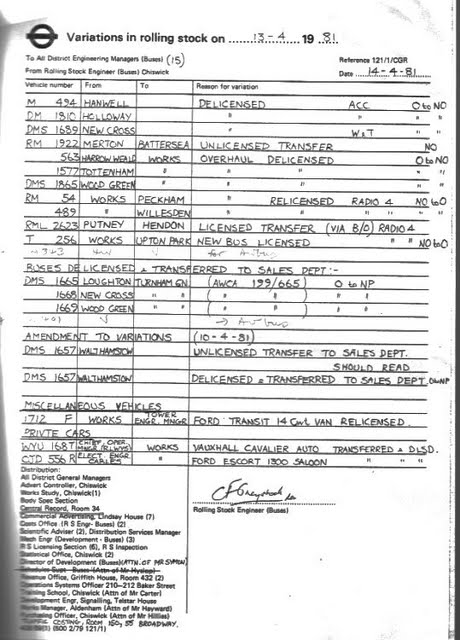 Variations in rolling stock on 13-4 1981
To All District Engineering Managers (Buses) (15)
Reference 121/1/CGR
From Rolling Stock Engineer (Buses) Chiswick
Date 14-4-81
Vehicle number From To Reason for variation
M 494 HANWELL DELICENSED ACC O to NO
DM 1810 HOLLOWAY " "
DMS 1689 NEW CROSS " W&T "
RM 1922 MERTON BATTERSEA UNLICENSED TRANSFER NO
563 HARROW WEALD WORKS OVERHAUL DELICENSED O to NO
1577 TOTTENHAM " " " "
DMS 1865 WOOD GREEN " " " "
RM 54 WORKS PECKHAM RELICENSED RADIO 4 NO to O
489 " WILLESDEN " " "
RML 2623 PUTNEY HENDON LICENSED TRANSFER (VIA B/O) RADIO 4
T 256 WORKS UPTON PARK NEW BUS LICENSED " " NO to O
BUSES DELICENSED & TRANSFERRED TO SALES DEPT :-
DMS 1665 LOUGHTON TURNHAM GN. (AWCA 199/665) O to NP
1668 NEW CROSS " ( " " ) "
1669 WOOD GREEN " ( " " ) "
AMENDMENT TO VARIATIONS (10-4-81)
DMS 1657 WALTHAMSTOW UNLICENSED TRANSFER TO SALES DEPT.
SHOULD READ
DMS 1657 WALTHAMSTOW DELICENSED & TRANSFERRED TO SALES DEPT. O to NP
MISCELLANEOUS VEHICLES
1712 F WORKS TOWER ENGR. MNGR. FORD TRANSIT 14 Cwt. VAN RELICENSED.
PRIVTE CARS
WYU 168T CHIEF OPER. MNGR (RLWYS) WORKS VAUXHALL CAVALIER AUTO TRANSFERRED & DLSD.
556 R ELECT. ENGR CABLES " FORD ESCORT 1300 SALOON " "
Distribution:
All District General Managers
Advert Controller, Chiswick
Works Study, Chiswick(1)
Body Spec Section
Central Record, Room 34
Commercial Advertising, Lindsay House (7)
Costs Office (R S Engr- Buses) (2)
Scientific Adviser (2), Distribution Services Manager
Mech Engr (Development - Buses) (3)
R S Licensing Section (6), R S Inspection
Statistical Office, Chiswick (2)
Director of Development (Buses) (ATTN. OF MR SYMON)
Schedules Supt - Buses (Attn of Mr Hyslop)
Revenue Office, Griffith House, Room 432 (2)
Operations Systems Officer 210-212 Baker Street
Training School, Chiswick (Attn of Mr Carter)
Development Engr, Signalling, Telstar House
Works Manager, Aldenham (Attn of Mr Hayward)
Purchasing Officer, Chiswick (Attn of Mr Hillies)
TRAFFIC COSTING, ROOM 150, 55 BROADWAY.
(500 2/79 121/1)
Rolling Stock Engineer (Buses)